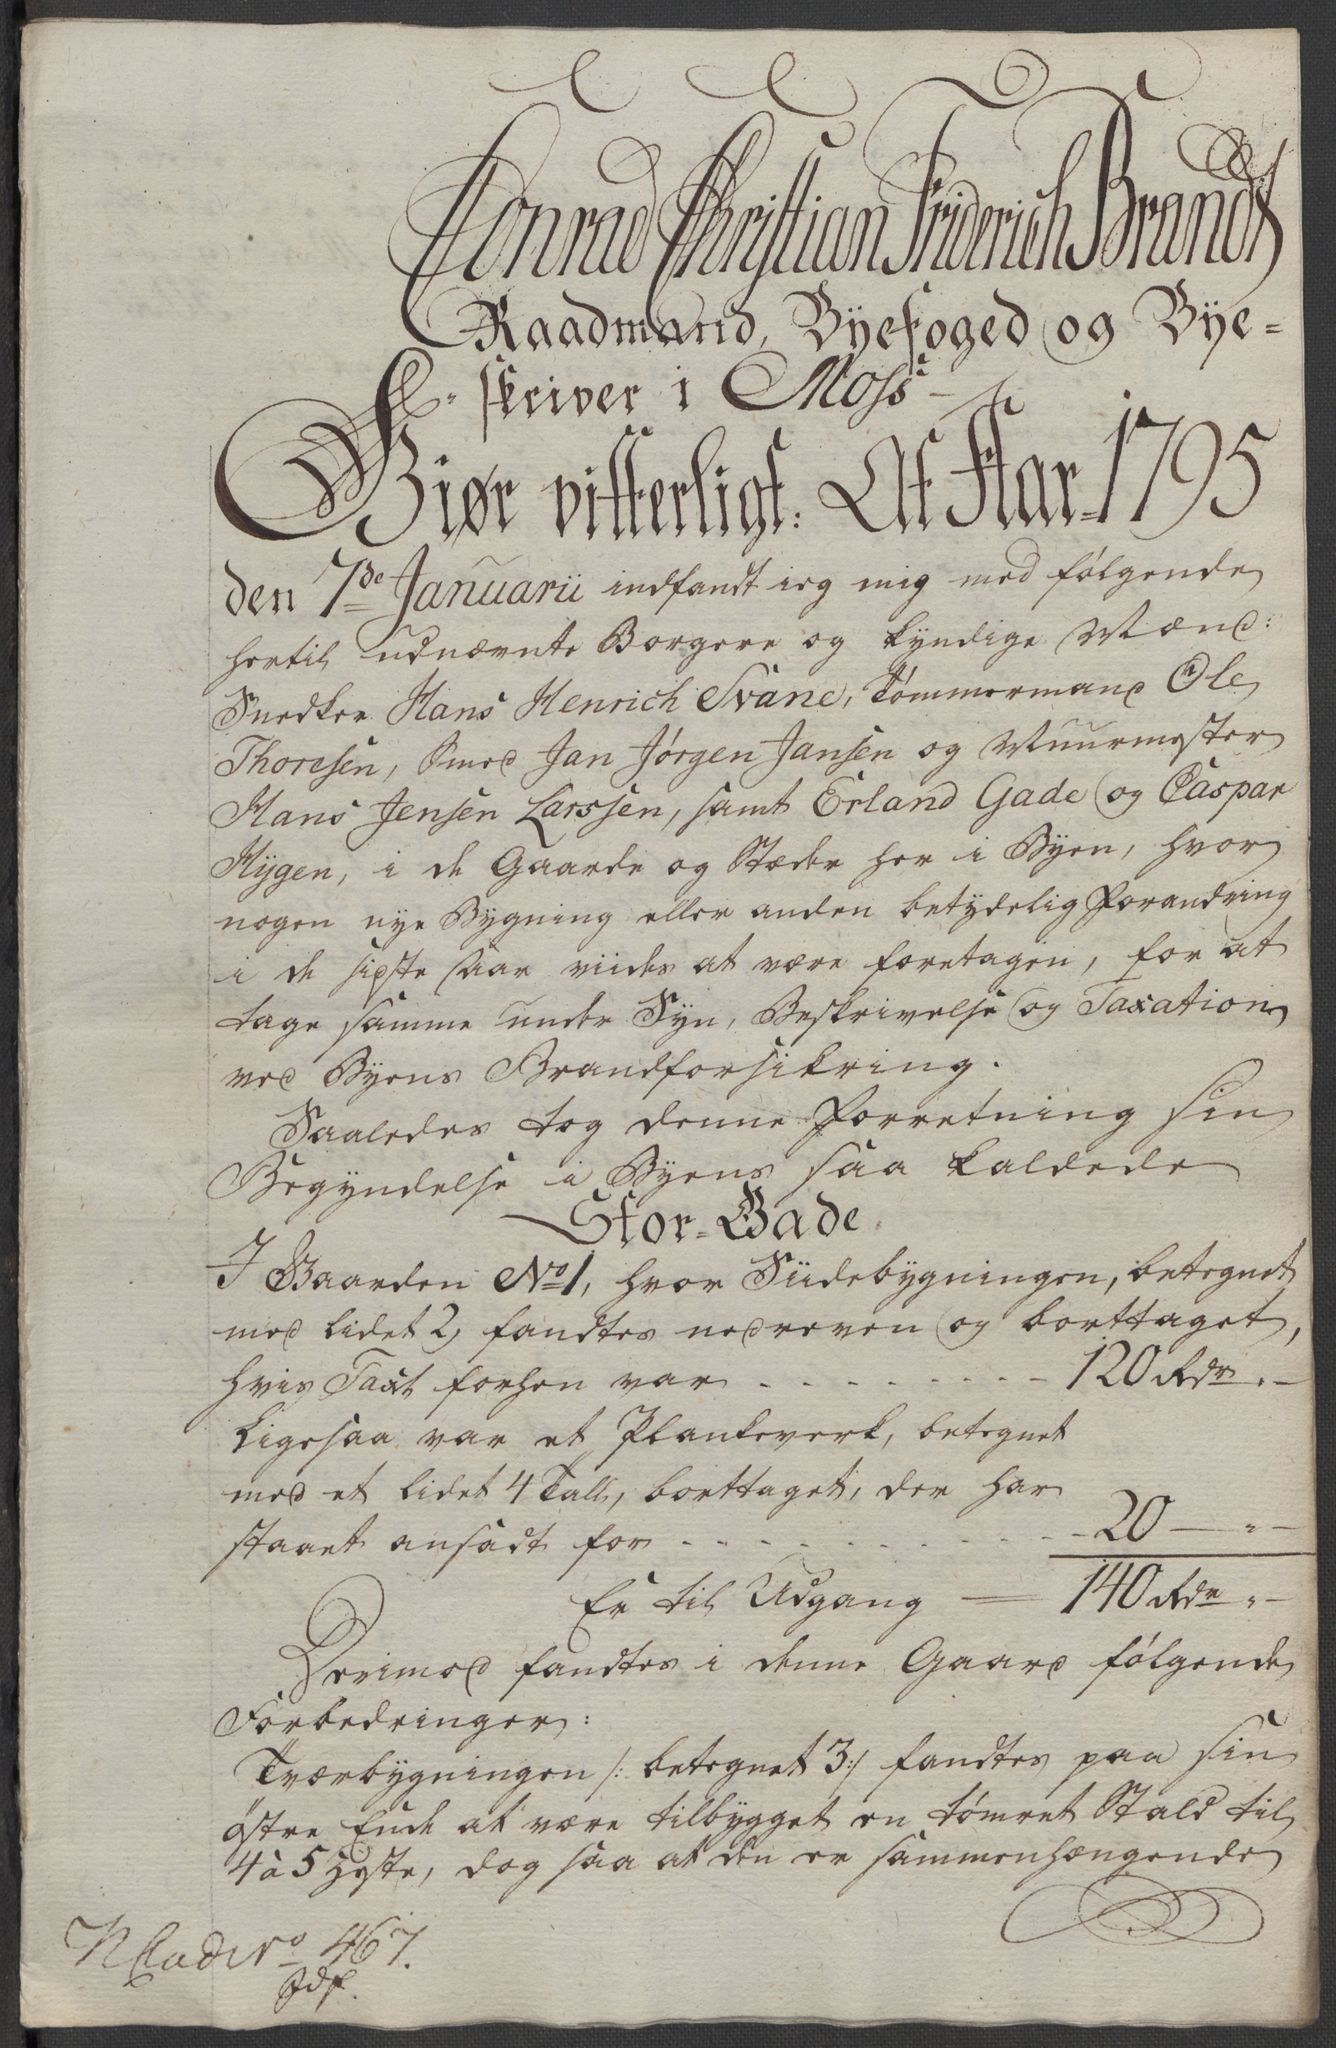 Conrad Christian Friderich Brandt
Raadmand, Byefoged og Bye-
skriver i Moss
Giør vitterligt: At Aar 1795
den 7de Januarii indfandt ieg mig med følgende
hertil udnævnte Borgere og kyndige Mænd:
Snedker Hans Henrich Svane, Tømmermand Ole
Thoresen, Smed Jan Jørgen Jansen og Muurmester
Hans Jensen Larssen, samt Erland Gade og Caspar
Hÿgen, i de Gaarde og Stæder her i Byen, hvor
nogen nye Bygning eller anden betydelig Forandring
i de sidste Aar viides at være foretagen, for at
tage samme under Syn, Beskrivelse og Taxation
ved Byens Brandforsikring.
Saaledes tog denne Forretning sin
Begyndelse i Byens saa kaldede
Stor-Gade.
I Gaarden No 1, hvor Siidebygningen, betegnet
med lidet 2, fandtes nedreven og borttaget,
hvis Taxt forhen var - - - - 120 Rdr „ -
Ligesaa var et Plankeverk, betegnet
med et lidet 4 Tall, borttaget, der har
staaet ansadt for - - - - 20 — „ -
Er til Udgang — 140 Rdr „ -
Derimod fandtes i denne Gaard følgende
Forbedringer:
Tværbygningen /: betegnet 3 :/ fandtes paa sin
østre Ende at være tilbygget en tømret Stald til
4 à 5 Heste, dog saa at den er sammenhængende
No 467.